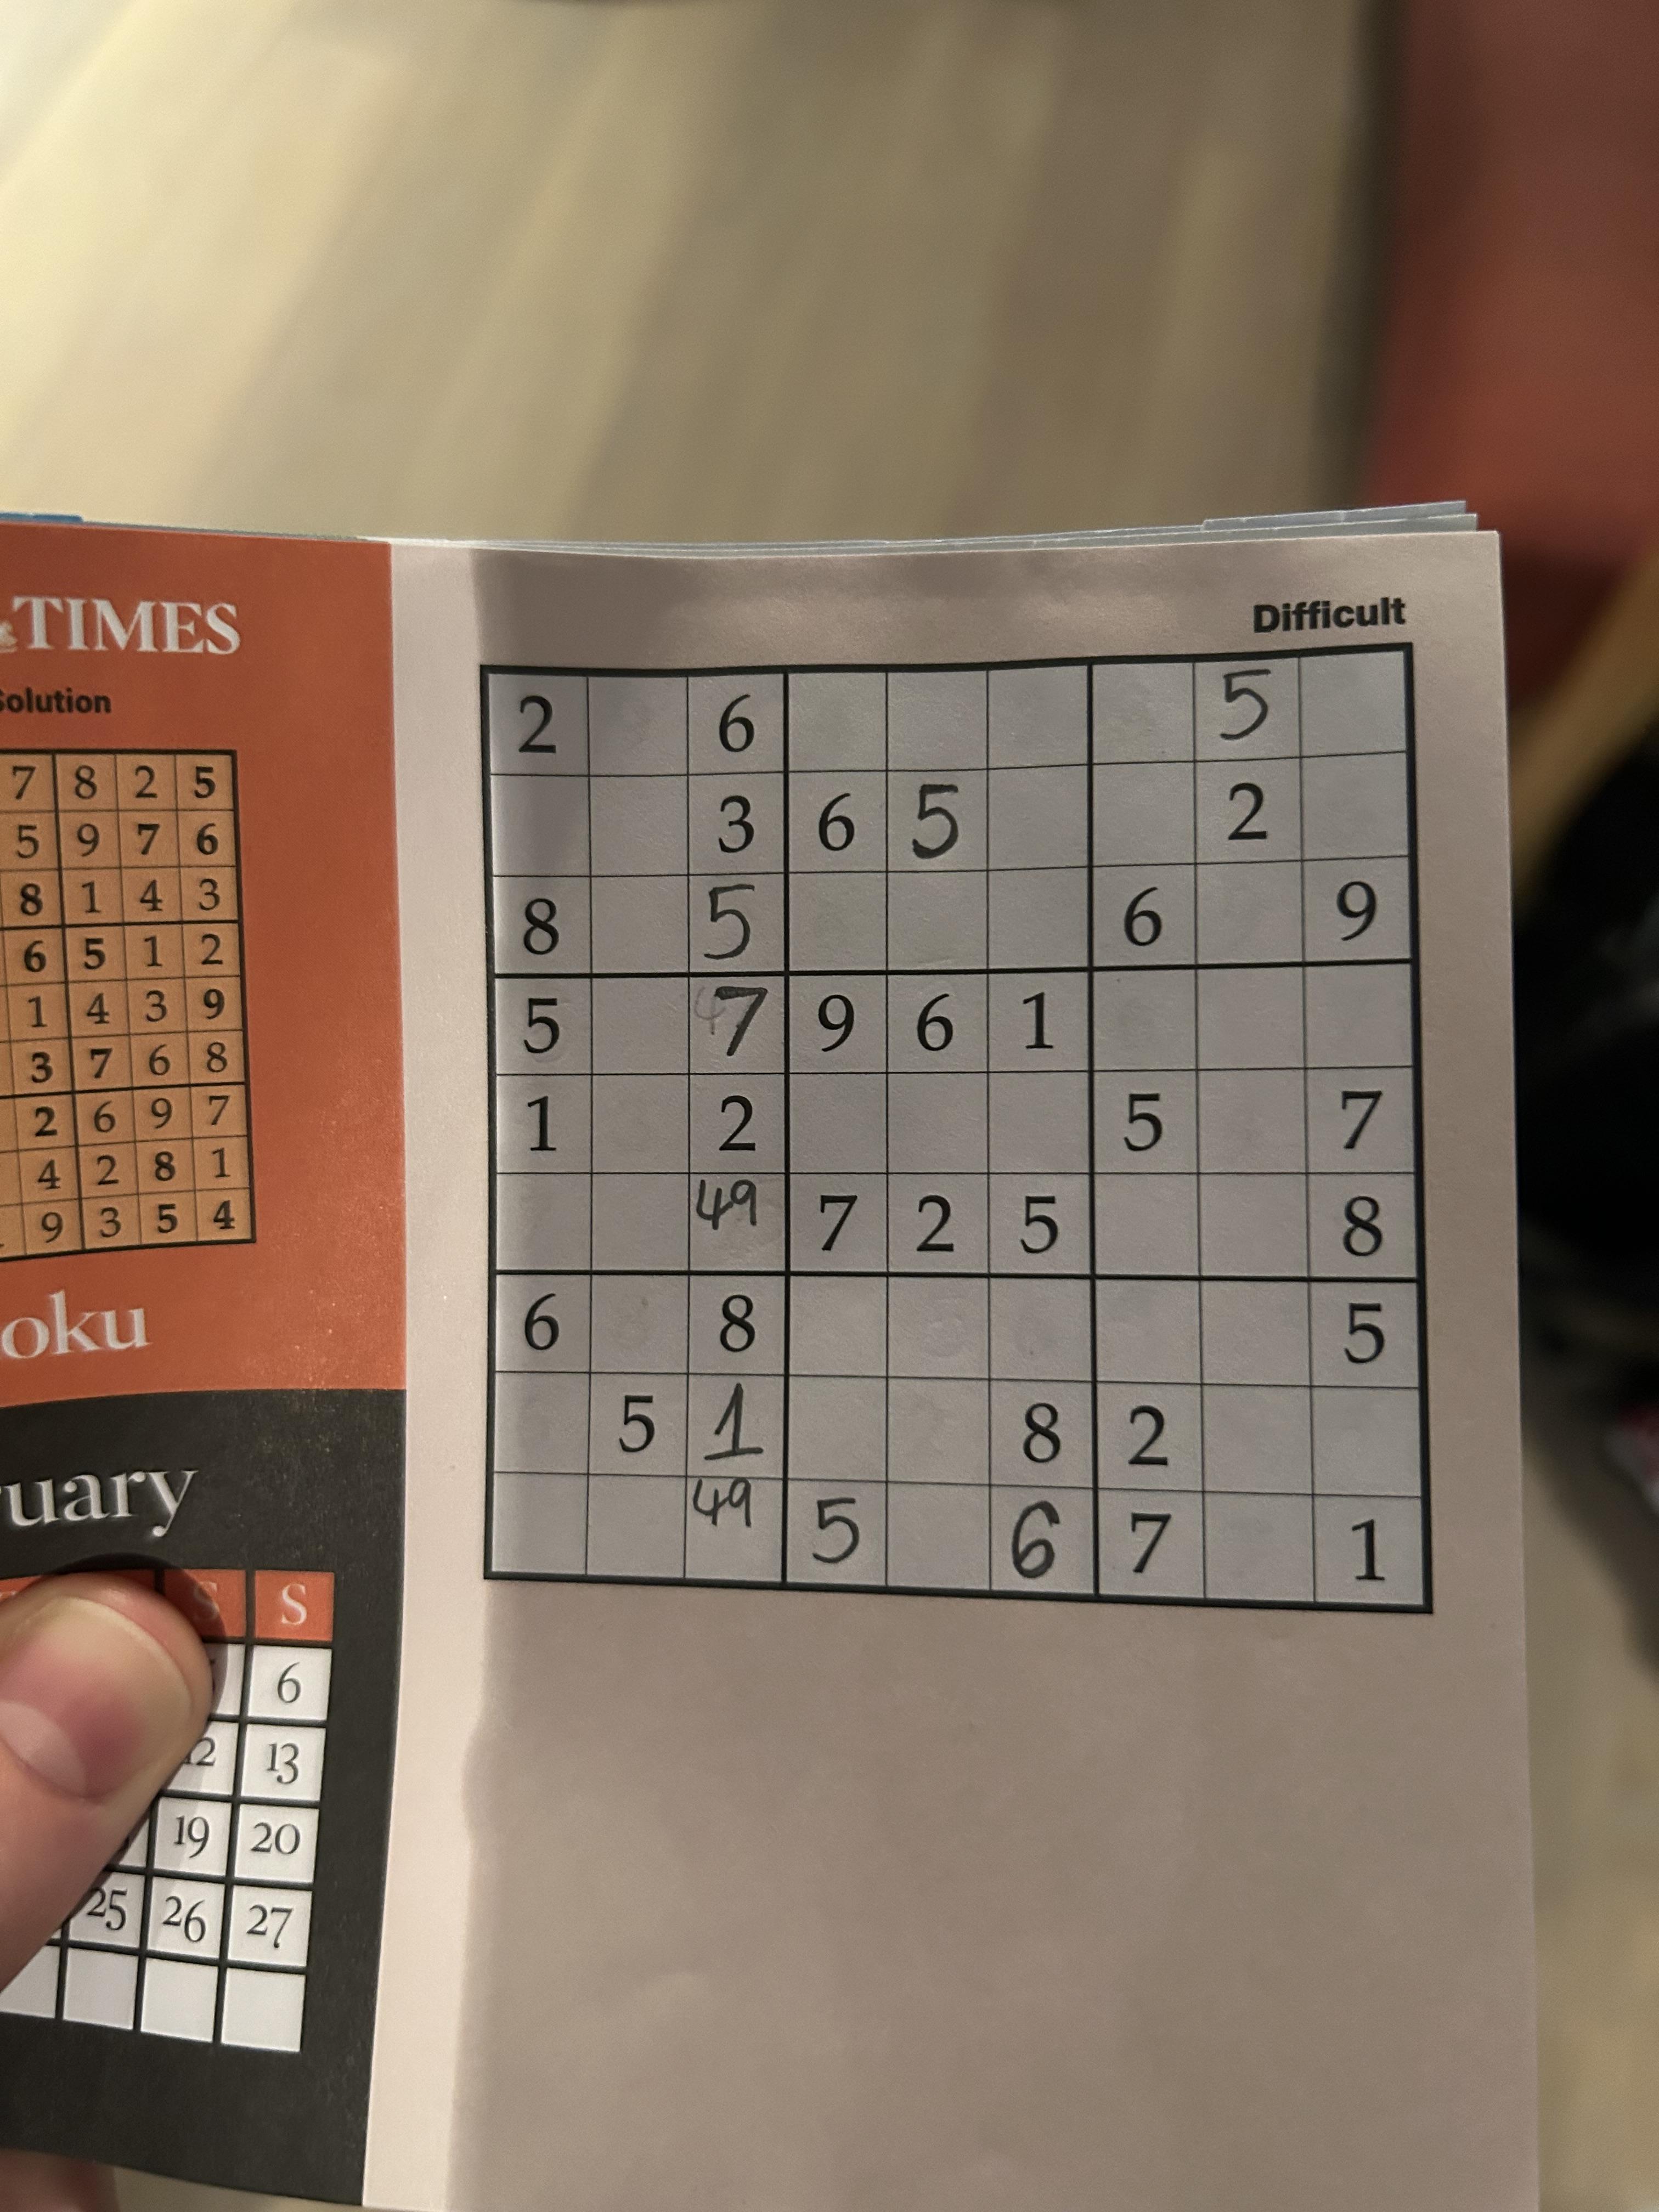 TIMES
Solution
7 8 2 5
5 9 7 6
8 1 4 3
6 5 1 2
1 4 3 9
3 7 6 8
2 6 9 7
4 2 8 1
9 3 5 4
oku
uary
S S
6
12 13
19 20
25 26 27
Difficult
2 6 5
3 6 5 2
8 5 6 9
5 7 9 6 1
1 2 5 7
49 7 2 5 8
6 8 5
5 1 8 2
49 5 6 7 1